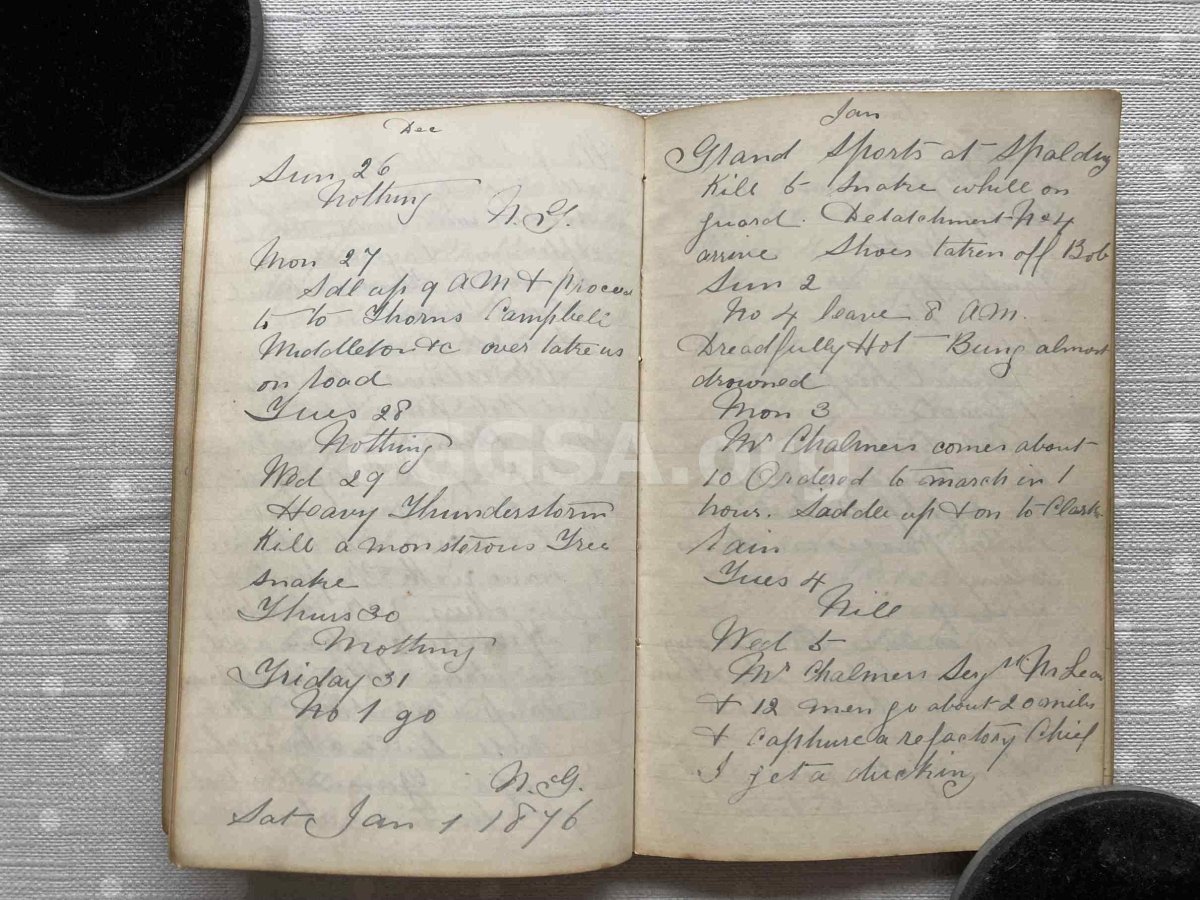 Dec
Sun 26
Nothing
N.G.
Mon 27
Sdl up 9 AM & proceed
to to Thorns Campbell
Middleton &c over take us
on road
Tues 28
Nothing
Wed 29
Heavy Thunderstorm
Kill a monsterous Tree
snake
Thurs 30
Nothing
Friday 31
No 1 go
N.G.
Sat Jan 1 1876
Jan
Grand Sports at Spalding
Kill 5 Snake while on
guard. Detatchment No 4
arrive Shoes taken off Bob
Sun 2
No 4 leave 8 AM.
Dreadfully Hot Bung almost
drowned
Mon 3
Mr Chalmers comes about
10 Ordered to march in 1
hour. Saddle up & on to Clark
rain
Tues 4
Nill
Wed 5
Mr Chalmers Sergt McLean
& 12 men go about 20 miles
& capture a refactory Chief
I get a ducking
GGSA.org